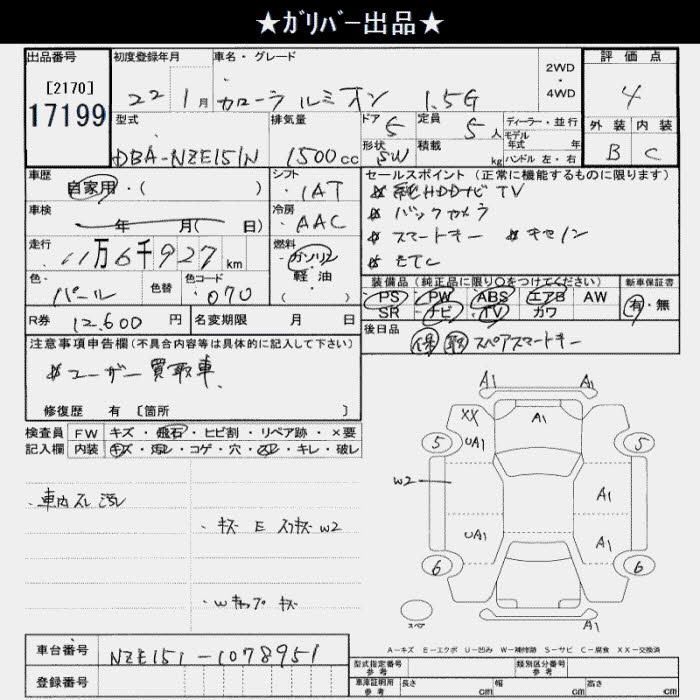 ★ｶﾞﾘﾊﾞｰ出品★
出品番号
[2170]
17199
初度登録年月
22年 1月
車名・グレード
カローラ ルミオン 1.5G
2WD
・
4WD
評価点
4
外装 内装
B C
型式
DBA-NZE151N
排気量
1500cc
ドア
5
定員
5人
形状
SW
積載
kg
ディーラー・並行
モデル年式 年
ハンドル 左・右
車歴
自家用・( )
車検
年 月( 日)
走行
11万6千927km
色
パール
色替
色コード
070
シフト
IAT
冷房
AAC
燃料
ガソリン
軽・油
( )
R券 12,600円
名変期限 月 日
セールスポイント(正常に機能するものに限ります)
純HDDナビ TV
バックカメラ
スマートキー キセノン
ETC
装備品(純正品に限り○をつけてください)
PS PW ABS エアB AW
SR ナビ TV カワ
新車保証書
有・無
後日品
保 取 スペアスマートキー
注意事項申告欄(不具合内容等は具体的に記入して下さい)
ユーザー買取車
修復歴 有 [箇所 ]
検査員記入欄
FW キズ・飛石・ヒビ割・リペア跡・×要
内装 キズ・汚レ・コゲ・穴・スレ・キレ・破レ
・車内スレ汚レ
・キズ E スリキズ W2
・Wキャップ キズ
A1 A1
XX A1
5 UA1 5
W2 A1
UA1 A1
6 6
スペア A1
A－キズ E－エクボ U－凹み W－補修跡 S－サビ C－腐食 XX－交換済
車台番号 NZE151-1078951
登録番号
型式指定番号 参考
類別区分番号 参考
車庫証明用 参考
長さ cm 幅 cm 高さ cm